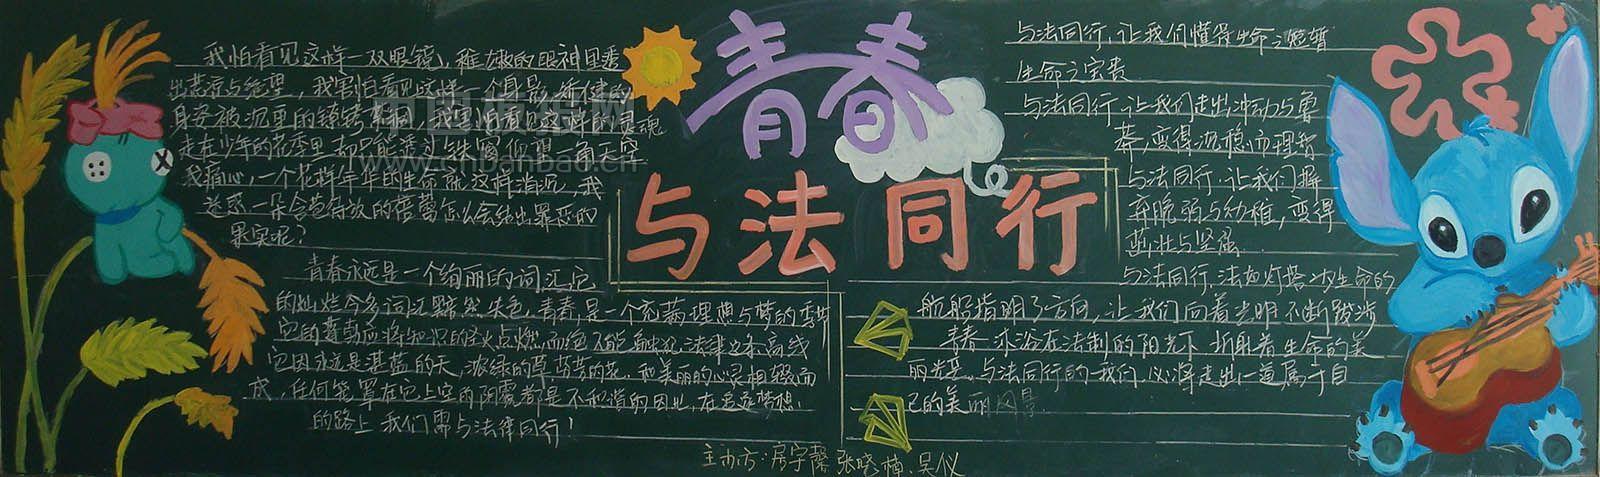 青春
与法同行
我怕看见这样一双眼镜，稚嫩的眼神里透
出悲凉与绝望，我害怕看见这样一个身影，矫健的
身姿被沉重的镣铐，我害怕看见这样的灵魂
走在少年的花季里却只能透过铁窗仰望一角天空
我痛心，一个花样年华的生命就这样消沉，我
迷惑一朵含苞待放的蓓蕾怎么会结出罪恶的
果实呢？
青春永远是一个绚丽的词汇，它
的灿烂令多词汇黯然失色，青春，是一个充满理想与梦的季节
它的舞动应将知识的圣火点燃而绝不能触犯法律这条高线
它因永远是湛蓝的天，浓绿的草芬芳的花，和美丽的心灵相辍而
成，任何笼罩在它上空的阴霾都是不和谐的因此，在追逐梦想
的路上我们需与法律同行！
与法同行，让我们懂得生命之短暂
生命之宝贵
与法同行，让我们走出冲动与鲁
莽，变得沉稳而理智
与法同行，让我们摒
弃脆弱与幼稚，变得
茁壮与坚强…
与法同行，法如灯塔为生命的
航船指明了方向，让我们向着光明不断跨涉
青春沐浴在法制的阳光下折射着生命的美
丽光芒。与法同行的我们，必将走出一道属于自
己的美丽风景
主办方：房宇馨 张晓楠、吴仪
中国板报网
www.cnbanbao.cn